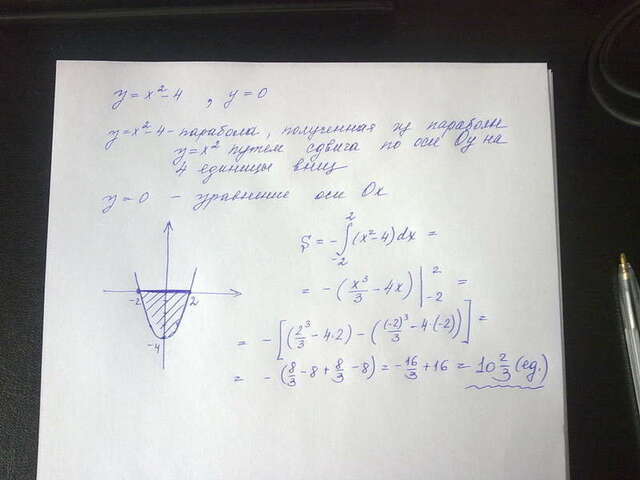 y = x² - 4 , y = 0
y = x² - 4 - парабола, полученная из параболы
y = x² путем сдвига по оси Oy на
4 единицы вниз
y = 0 - уравнение оси Ox
S = - ∫₋₂² (x² - 4) dx =
= - (x³/3 - 4x) |₋₂² =
= - [(2³/3 - 4·2) - ((-2)³/3 - 4·(-2))] =
= - (8/3 - 8 + 8/3 - 8) = - 16/3 + 16 = 10 2/3 (ед.)
-2 2
-4